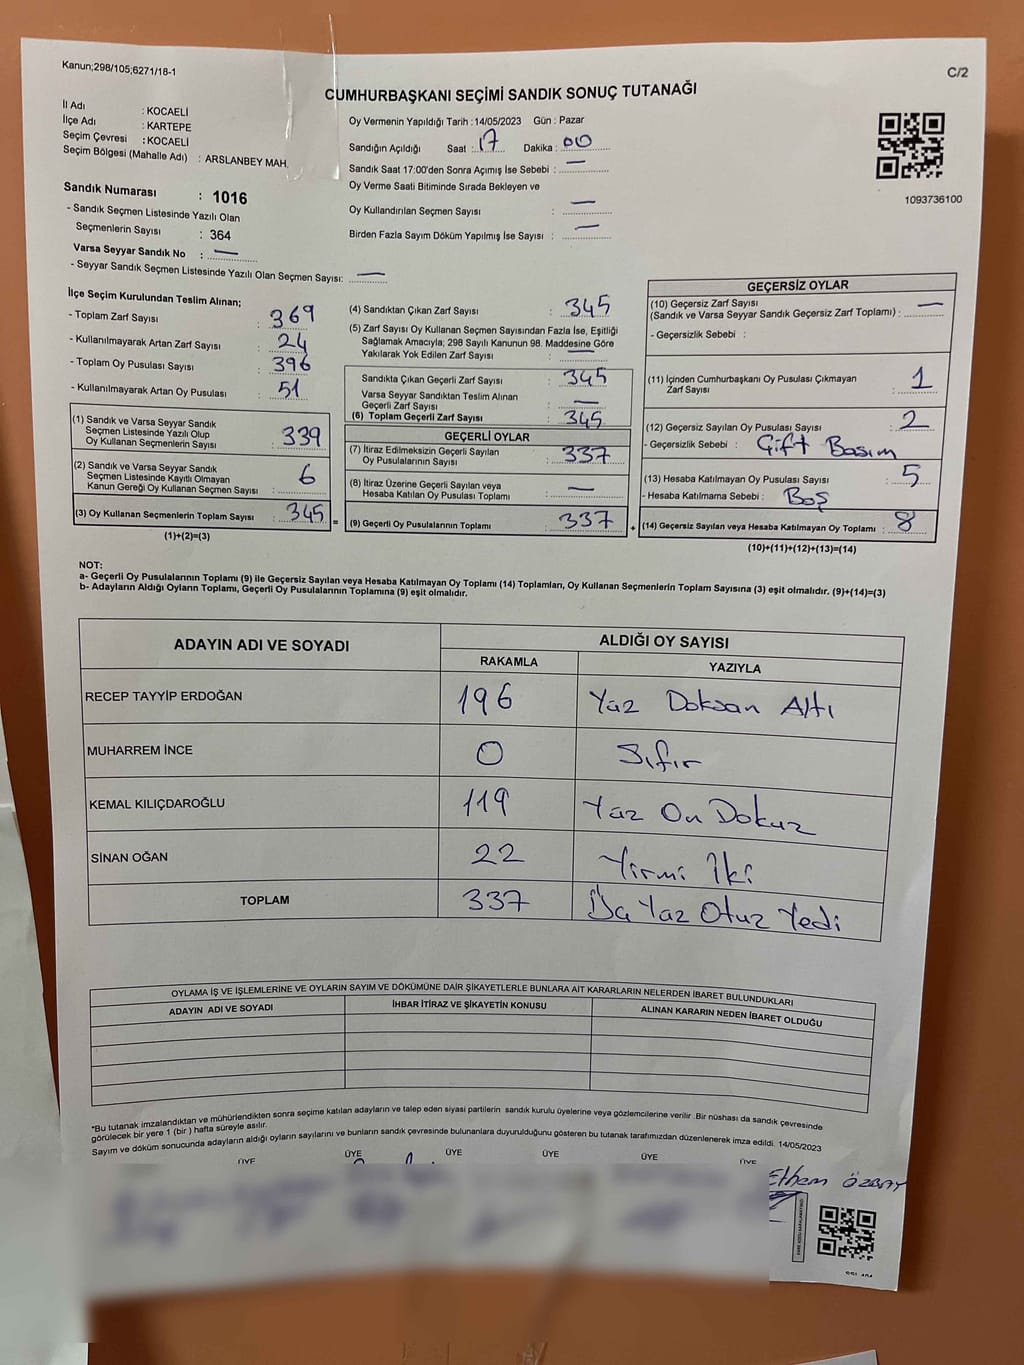 Kanun;298/105;6271/16-1
C/2
CUMHURBAŞKANI SEÇİMİ SANDIK SONUÇ TUTANAĞI
İl Adı : KOCAELİ
İlçe Adı : KARTEPE
Seçim Çevresi : KOCAELİ
Seçim Bölgesi (Mahalle Adı) : ARSLANBEY MAH.
Sandık Numarası : 1016
- Sandık Seçmen Listesinde Yazılı Olan
Seçmenlerin Sayısı : 364
Varsa Seyyar Sandık No : —
- Seyyar Sandık Seçmen Listesinde Yazılı Olan Seçmen Sayısı: —
Oy Vermenin Yapıldığı Tarih : 14/05/2023 Gün : Pazar
Sandığın Açıldığı Saat : 17 Dakika : 00
Sandık Saat 17:00'den Sonra Açımış İse Sebebi : —
Oy Verme Saati Bitiminde Sırada Bekleyen ve
Oy Kullandırılan Seçmen Sayısı : —
Birden Fazla Sayım Döküm Yapılmış İse Sayısı : —
1093736100
İlçe Seçim Kurulundan Teslim Alınan;
- Toplam Zarf Sayısı : 369
- Kullanılmayarak Artan Zarf Sayısı : 24
- Toplam Oy Pusulası Sayısı : 396
- Kullanılmayarak Artan Oy Pusulası : 51
(1) Sandık ve Varsa Seyyar Sandık
Seçmen Listesinde Yazılı Olup
Oy Kullanan Seçmenlerin Sayısı : 339
(2) Sandık ve Varsa Seyyar Sandık
Seçmen Listesinde Kayıtlı Olmayan
Kanun Gereği Oy Kullanan Seçmen Sayısı : 6
(3) Oy Kullanan Seçmenlerin Toplam Sayısı : 345
(1)+(2)=(3)
(4) Sandıktan Çıkan Zarf Sayısı : 345
(5) Zarf Sayısı Oy Kullanan Seçmen Sayısından Fazla İse, Eşitliği
Sağlamak Amacıyla; 298 Sayılı Kanunun 98. Maddesine Göre
Yakılarak Yok Edilen Zarf Sayısı : —
Sandıkta Çıkan Geçerli Zarf Sayısı : 345
Varsa Seyyar Sandıktan Teslim Alınan
Geçerli Zarf Sayısı : —
(6) Toplam Geçerli Zarf Sayısı : 345
GEÇERLİ OYLAR
(7) İtiraz Edilmeksizin Geçerli Sayılan
Oy Pusulalarının Sayısı : 337
(8) İtiraz Üzerine Geçerli Sayılan veya
Hesaba Katılan Oy Pusulaları Toplamı : —
= (9) Geçerli Oy Pusulalarının Toplamı : 337
GEÇERSİZ OYLAR
(10) Geçersiz Zarf Sayısı
(Sandık ve Varsa Seyyar Sandık Geçersiz Zarf Toplamı) : —
- Geçersizlik Sebebi :
(11) İçinden Cumhurbaşkanı Oy Pusulası Çıkmayan
Zarf Sayısı : 1
(12) Geçersiz Sayılan Oy Pusulası Sayısı : 2
- Geçersizlik Sebebi : Çift Basım
(13) Hesaba Katılmayan Oy Pusulası Sayısı : 5
- Hesaba Katılmama Sebebi : Boş
+ (14) Geçersiz Sayılan veya Hesaba Katılmayan Oy Toplamı : 8
(10)+(11)+(12)+(13)=(14)
NOT:
a- Geçerli Oy Pusulalarının Toplamı (9) ile Geçersiz Sayılan veya Hesaba Katılmayan Oy Toplamı (14) Toplamları, Oy Kullanan Seçmenlerin Toplam Sayısına (3) eşit olmalıdır. (9)+(14)=(3)
b- Adayların Aldığı Oyların Toplamı, Geçerli Oy Pusulalarının Toplamına (9) eşit olmalıdır.
ADAYIN ADI VE SOYADI ALDIĞI OY SAYISI
RAKAMLA YAZIYLA
RECEP TAYYİP ERDOĞAN 196 Yüz Doksan Altı
MUHARREM İNCE 0 Sıfır
KEMAL KILIÇDAROĞLU 119 Yüz On Dokuz
SİNAN OĞAN 22 Yirmi İki
TOPLAM 337 Üç Yüz Otuz Yedi
OYLAMA İŞ VE İŞLEMLERİNE VE OYLARIN SAYIM VE DÖKÜMÜNE DAİR ŞİKAYETLERLE BUNLARA AİT KARARLARIN NELERDEN İBARET BULUNDUKLARI
ADAYIN ADI VE SOYADI İHBAR İTİRAZ VE ŞİKAYETİN KONUSU ALINAN KARARIN NEDEN İBARET OLDUĞU
*Bu tutanak imzalandıktan ve mühürlendikten sonra seçime katılan adayların ve talep eden siyasi partilerin sandık kurulu üyelerine veya gözlemcilerine verilir .Bir nüshası da sandık çevresinde
görülecek bir yere 1 (bir ) hafta süreyle asılır.
Sayım ve döküm sonucunda adayların aldığı oyların sayılarını ve bunların sandık çevresinde bulunanlara duyurulduğunu gösteren bu tutanak tarafımızdan düzenlenerek imza edildi. 14/05/2023
ÜYE ÜYE ÜYE ÜYE ÜYE ÜYE
Ethem ÖZBAY